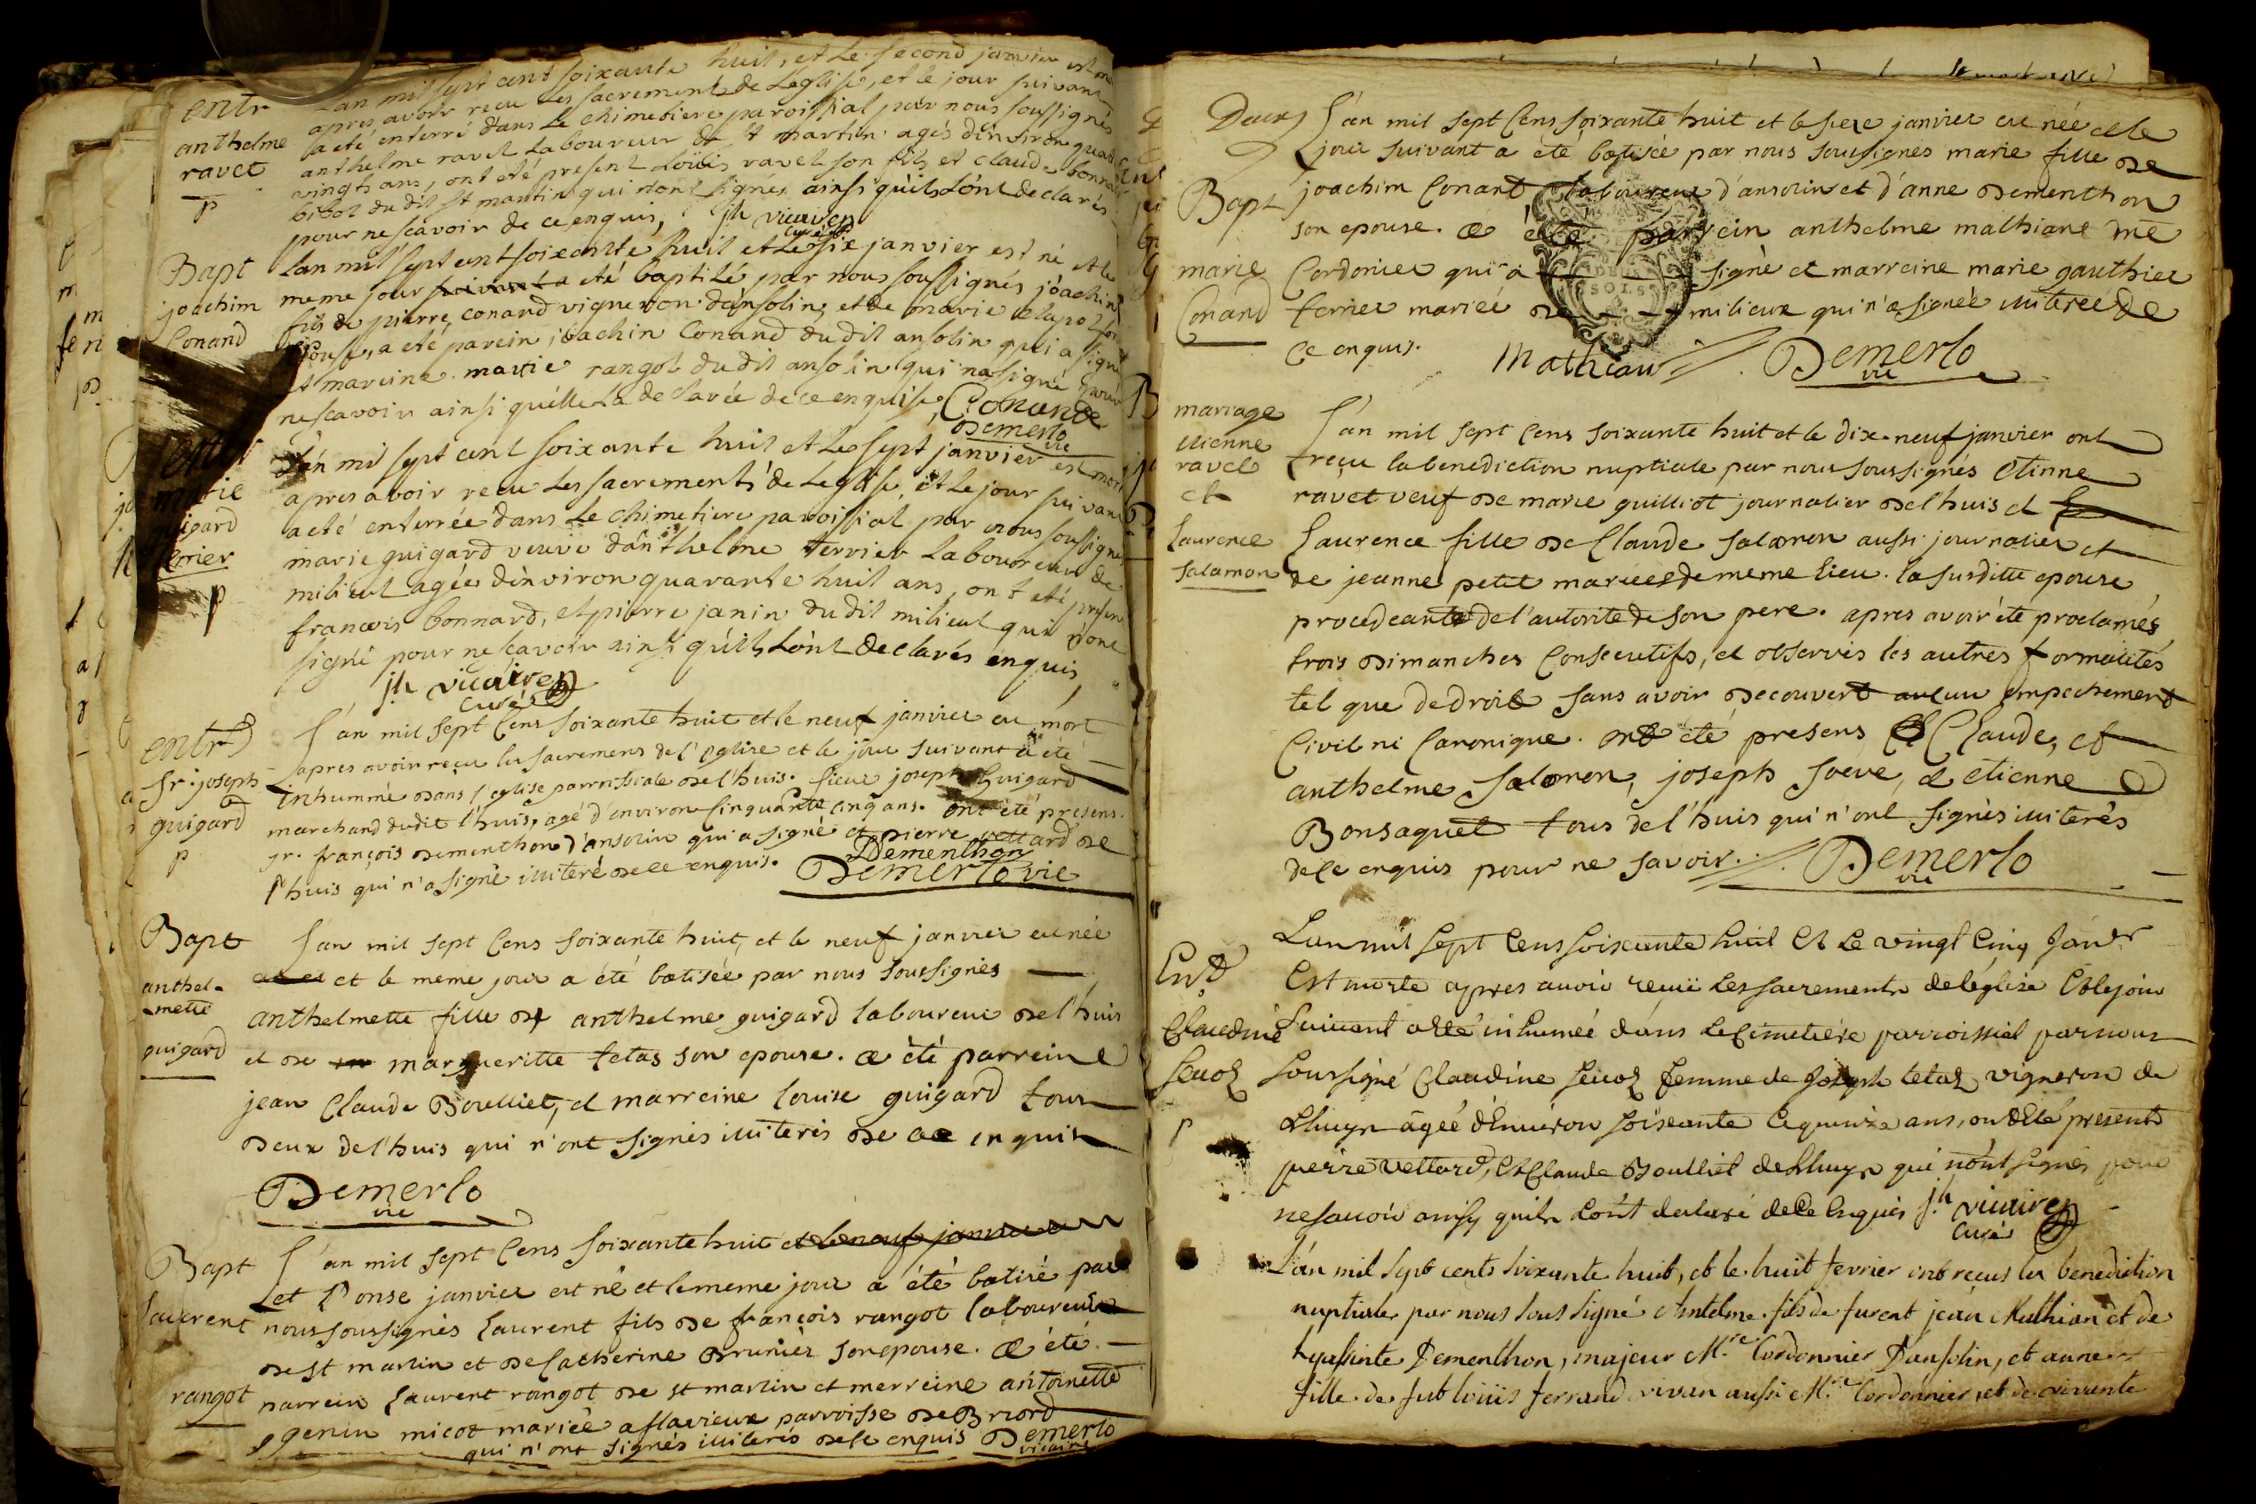 entr
anthelme
ravet
p
L'an mil sept cent soixante huit, et Le second janvier est mort
apres avoir recu Les sacrements de L'eglise, et le jour suivant
a eté enterré dans Le chimetiere paroissial par nous soussignés
anthelme ravet Laboureur de st martin agés d'environ quatre
vingts ans, ont eté present Loüis ravet son fils et claude bonnard
bibot du dit st martin qui n'ont signés ainsi qu'ils L'ont declarés
pour ne scavoir de ce enquis, jh vicaire
curé
Bapt
joachim
Conand
Lan mil sept cent soixante huit et Le six janvier est né et le
meme jour suivant a eté baptisé par nous soussignés joachim
fils de pierre conand vigneron d'ansolin, et de marie
epouse, a eté parein joachin Conand du dit ansolin qui a signé
et mareine marie rangot du dit ansolin qui na signé pour
ne scavoir ainsi qu'elle La declarée de ce enquise, Conand
Demerlo
vie
enter
marie
guigard
terrier
p
L'an mil sept cent soixante huit et Le sept janvier est morte
apres avoir recu Les sacrements de Leglise, et Le jour suivant
a eté enterrée dans Le chimetiere paroissial par nous soussignés
marie guigard veuve d'anthelme terrier Laboureur de
milieut agée d'environ quarante huit ans, ont eté present
francois bonnard, et pierre janin du dit milieut qui n'ont
signé pour ne scavoir ainsi qu'ils L'ont declarés enquis,
jh vicaire
curé
entr
Sr. joseph
guigard
p
L'an mil sept Cens soixante huit et le neuf janvier est mort
apres avoir reçu les sacremens de l'eglise et le jour suivant a été
inhummé dans l'eglise parroissiale de l'huis. sieur joseph Guigard
marchand dudit l'huis, agé d'environ cinquante cinq ans. ont été presens.
sr. françois dementhon d'ansolin qui a signé et pierre vettard de
l'huis qui n'a signé illiteré de ce enquis. Dementhon
Demerlo vie
Bapt
anthel-
mette
guigard
L'an mil sept Cens soixante huit, et le neuf janvier est née
et le meme jour a été batisée par nous soussignés
anthelmette fille de anthelme guigard laboureur de l'huis
et de margueritte tetas son epouse. a été parrein
jean Claude Boulliet, et marreine louise guigard tous
deux de l'huis qui n'ont signés illiterés de ce enquis
Demerlo
vie
Bapt
laurent
rangot
L'an mil sept Cens soixante huit et le neuf janvier
et l'onse janvier est né et le meme jour a été batisé par
nous soussignés laurent fils de françois rangot laboureur
de st martin et de Catherine Brunier son epouse. a été
parrein laurent rangot de st martin et merreine antoinette
genin micot mariée a flavieux parroisse de Briord
qui n'ont signés illiterés de ce enquis Demerlo
vicaire
Deux
Bapt
marie
Conand
L'an mil sept Cens soixante huit et le seze janvier est née et le
jour suivant a été batisée par nous soussignés marie fille de
joachim Conant laboureur d'ansolin et d'anne dementhon
son epouse. a été parrein anthelme mathiane me
Cordonier qui a signé et marreine marie gauthier
terrier mariée de milieux qui n'a signée illiterée de
ce enquis. Mathian Demerlo
vie
mariage
etienne
ravet
et
laurence
salamon
L'an mil sept Cens soixante huit et le dix-neuf janvier ont
reçu la benediction nuptiale par nous soussignés etienne
ravet veuf de marie guilliot journalier de l'huis et
Laurence fille de Claude salamon aussi journalier et
de jeanne petit mariés de meme lieu. la susditte epouse
procedeante de l'autorité de son pere. apres avoir été proclamés
trois dimanches Consecutifs, et observés les autres formalités
tel que de droit sans avoir decouvert aucun empechement
Civil ni Canonique. ont été presens Claude, et
anthelme salamon, joseph soeve, et etienne
Bonsaquet tous de l'huis qui n'ont signés illiterés
de ce enquis pour ne savoir. Demerlo
vie
Claudine
Seuoz
p
L'an mil sept Cens soixante huit et Le vingt Cinq Janvr
Est morte apres avoir reçu Les sacrements de l'église Et le jour
suivant a Eté inhumée dans Le Cimetiére parroissial par nous
soussigné Claudine Seuoz femme de Joseph tetaz vigneron de
Lhuys agée d'Environ soixante Et quinze ans, ont Eté présents
pierre vettard, Et Claude Boulliet de Lhuys qui n'ont signés pour
ne savoir ainsy quils Lont declaré de Ce Enquis jh vicaire
curé
L'an mil sept cents soixante huit, et le huit fevrier ont recus la bénédiction
nuptiale par nous sous signé Antelme fils de furent jean Mathian et de
hyassinte Dementhon, majeur Mre Cordonnier D'ansolin, et anne
fille de fut loüis ferrand vivan aussi Mre Cordonnier, et de vivante